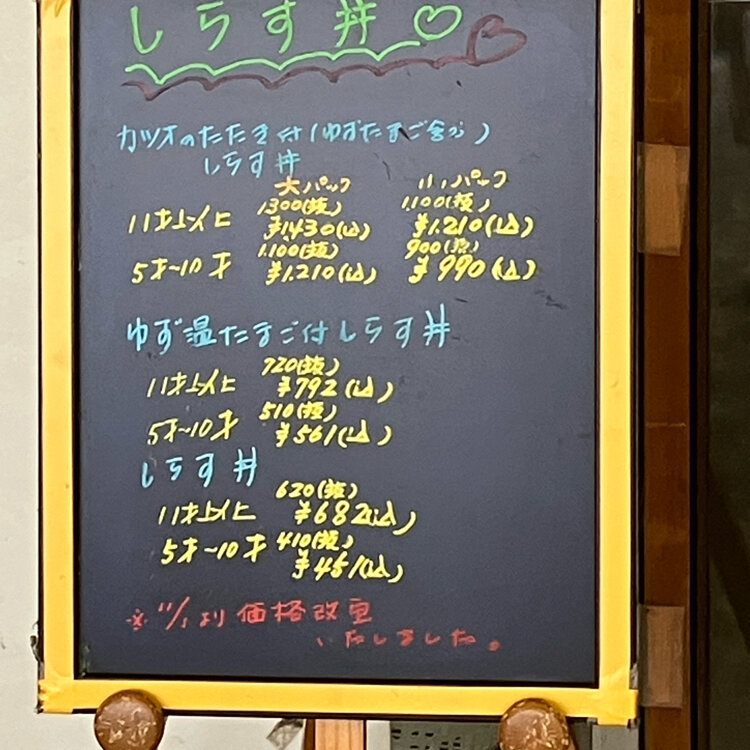 しらす丼♡
カツオのたたき付(ゆずたまご含む)
しらす丼
大パック 小パック
1300(抜) 1,100(抜)
11才以上 ¥1,430(込) ¥1,210(込)
1,100(抜) 900(抜)
5才~10才 ¥1,210(込) ¥990(込)
ゆず温たまご付しらす丼
720(抜)
11才以上 ¥792(込)
510(抜)
5才~10才 ¥561(込)
しらす丼
620(抜)
11才以上 ¥682(込)
410(抜)
5才~10才 ¥451(込)
※11/1より価格改更
いたしました。